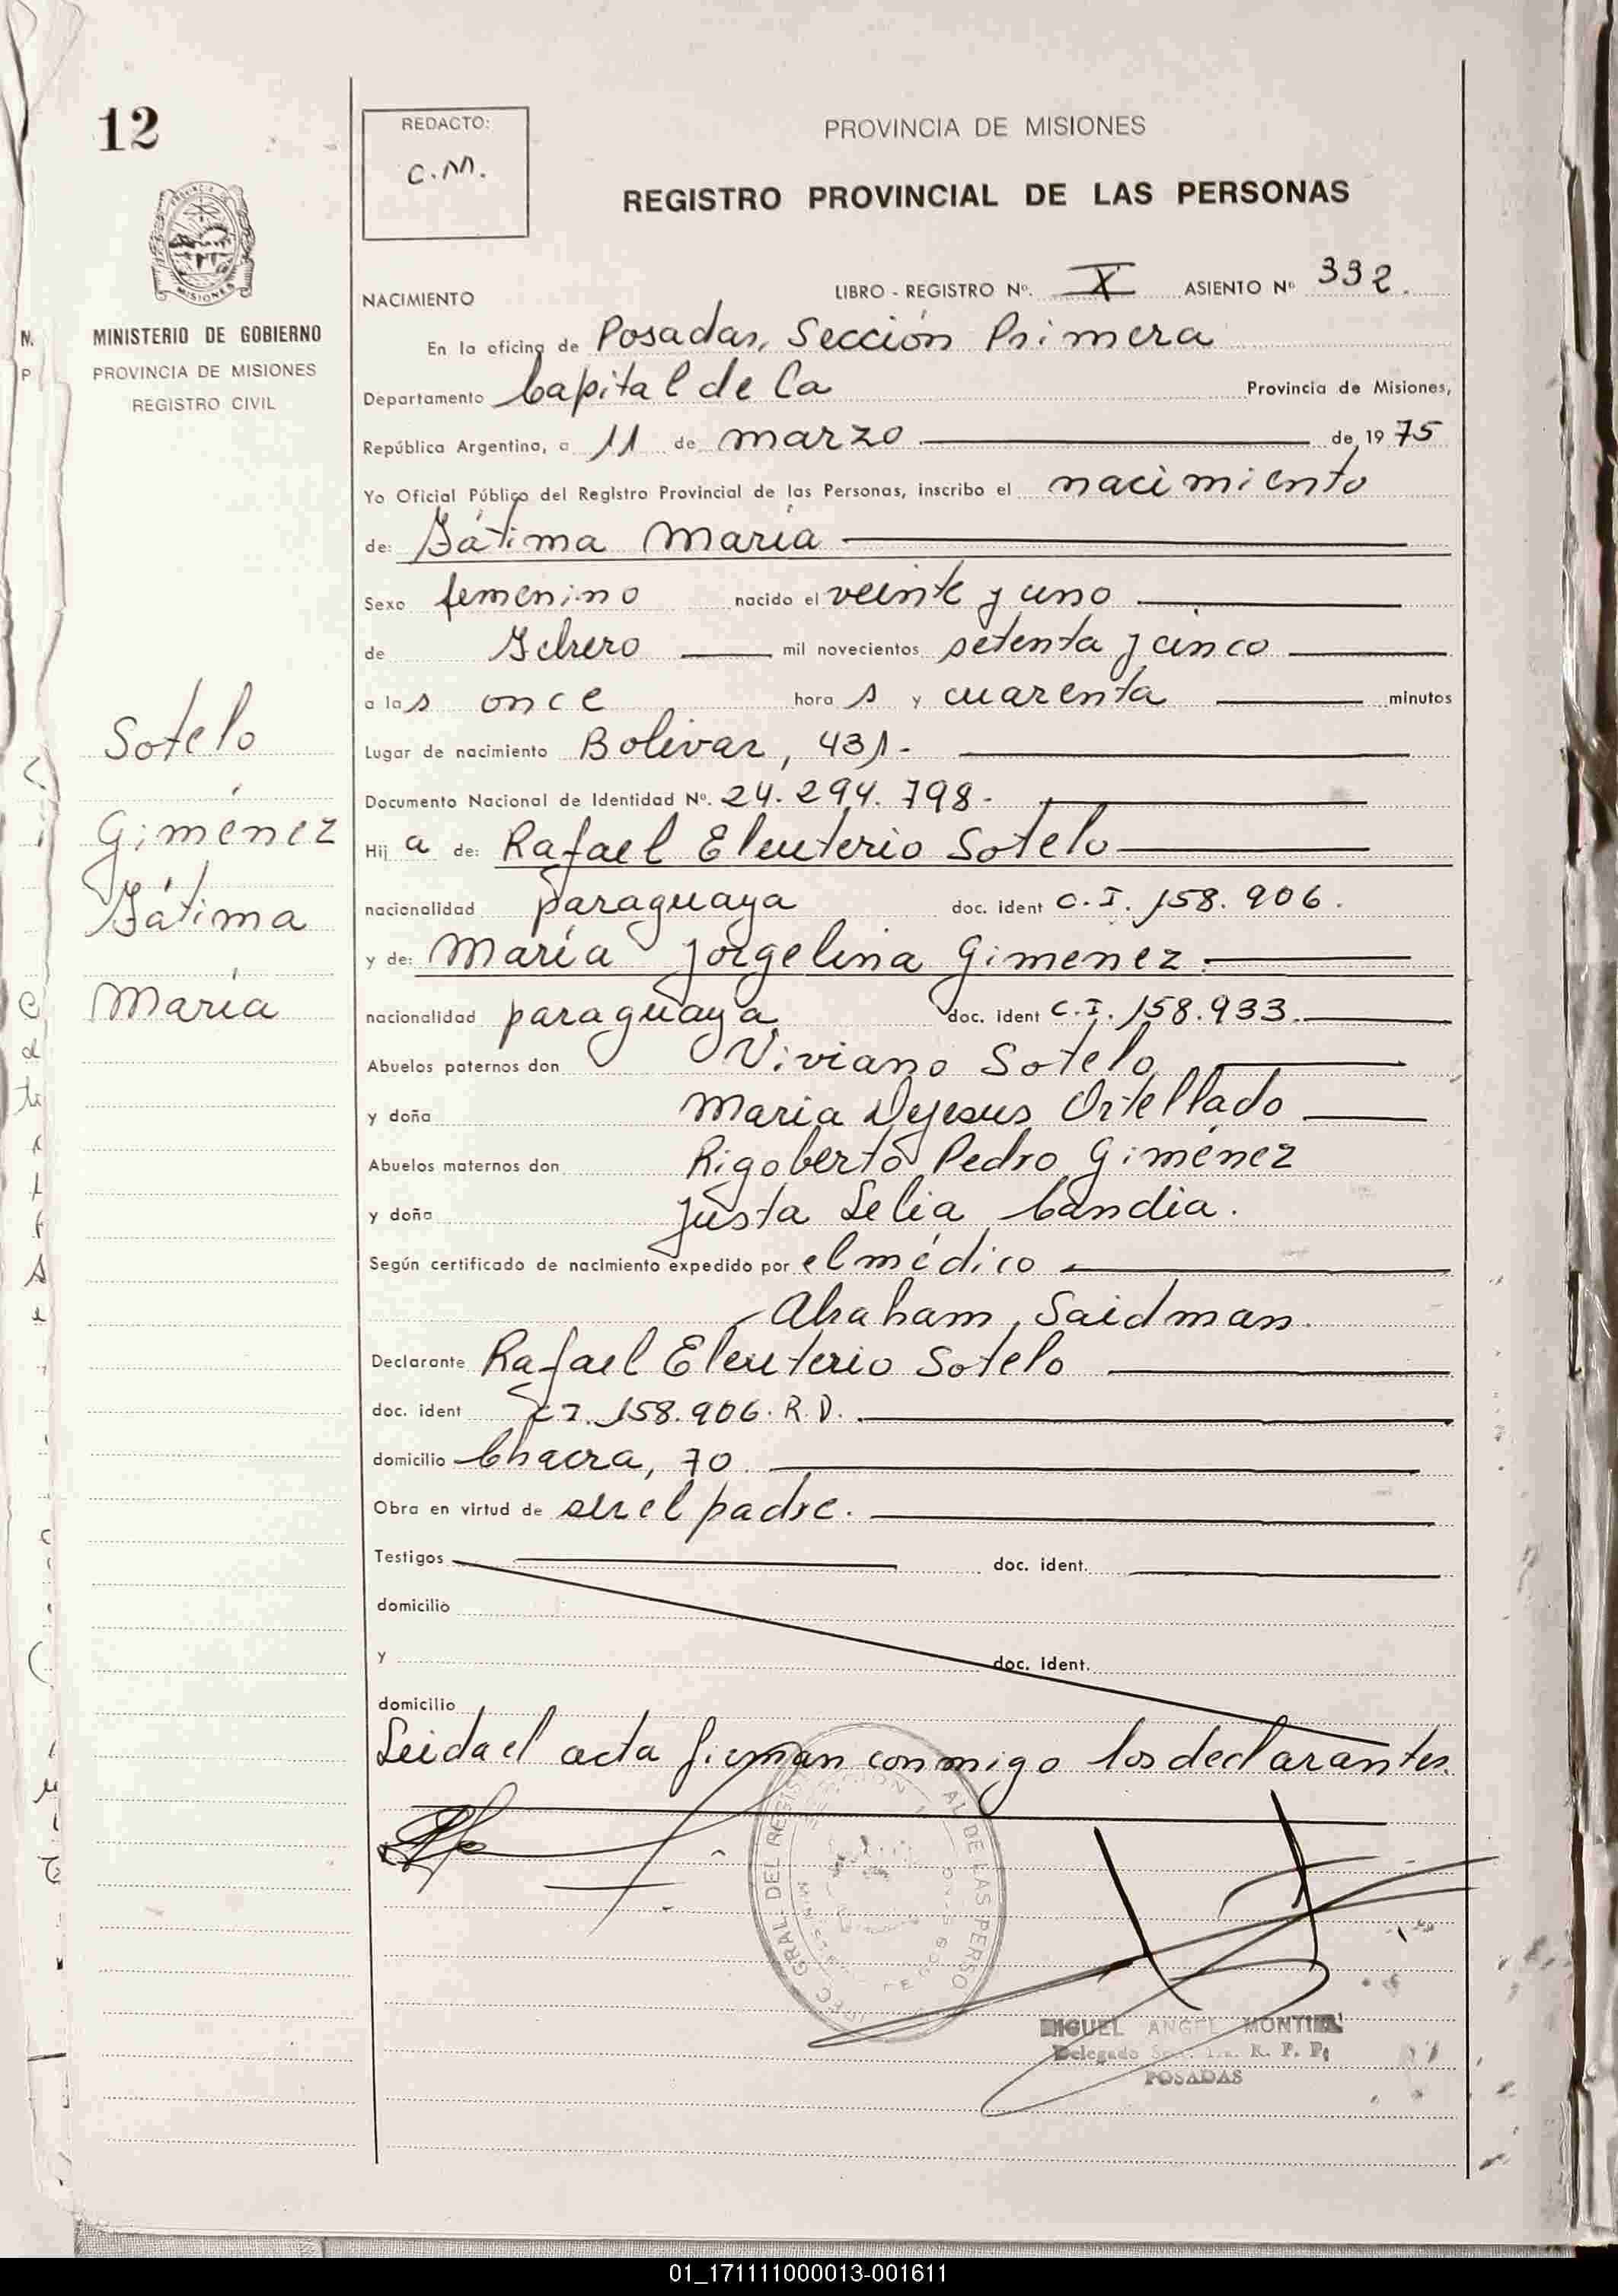 12
REDACTO:
C.M.
PROVINCIA DE MISIONES
REGISTRO PROVINCIAL DE LAS PERSONAS
MISIONES
MINISTERIO DE GOBIERNO
PROVINCIA DE MISIONES
REGISTRO CIVIL
Sotelo
Giménez
Fátima
María
NACIMIENTO
LIBRO - REGISTRO Nº. X ASIENTO Nº 332.
En la oficina de Posadas, Sección Primera
Departamento Capital de la Provincia de Misiones,
República Argentina, a 11 de marzo de 1975
Yo Oficial Público del Registro Provincial de las Personas, inscribo el nacimiento
de: Fátima María
Sexo femenino nacido el veinte y uno
de Febrero mil novecientos setenta y cinco
a las once horas y cuarenta minutos
Lugar de nacimiento Bolivar, 431.-
Documento Nacional de Identidad Nº. 24.294.798.-
Hija de: Rafael Eleuterio Sotelo
nacionalidad paraguaya doc. ident C.I. 158.906.
y de: María Jorgelina Gimenez
nacionalidad paraguaya doc. ident C.I. 158.933.
Abuelos paternos don Viviano Sotelo
y doña Maria Dejesus Ortellado
Abuelos maternos don Rigoberto Pedro Giménez
y doña Justa Selia Candia.
Según certificado de nacimiento expedido por el médico
Abraham Saidman.
Declarante Rafael Eleuterio Sotelo
doc. ident C.I. 158.906. R.D.
domicilio Chacra, 70
Obra en virtud de ser el padre.
Testigos doc. ident.
domicilio
y doc. ident.
domicilio
Leida el acta firman conmigo los declarantes.
MIGUEL ANGEL MONTIEL
Delegado R. P. P.
POSADAS
01_171111000013-001611